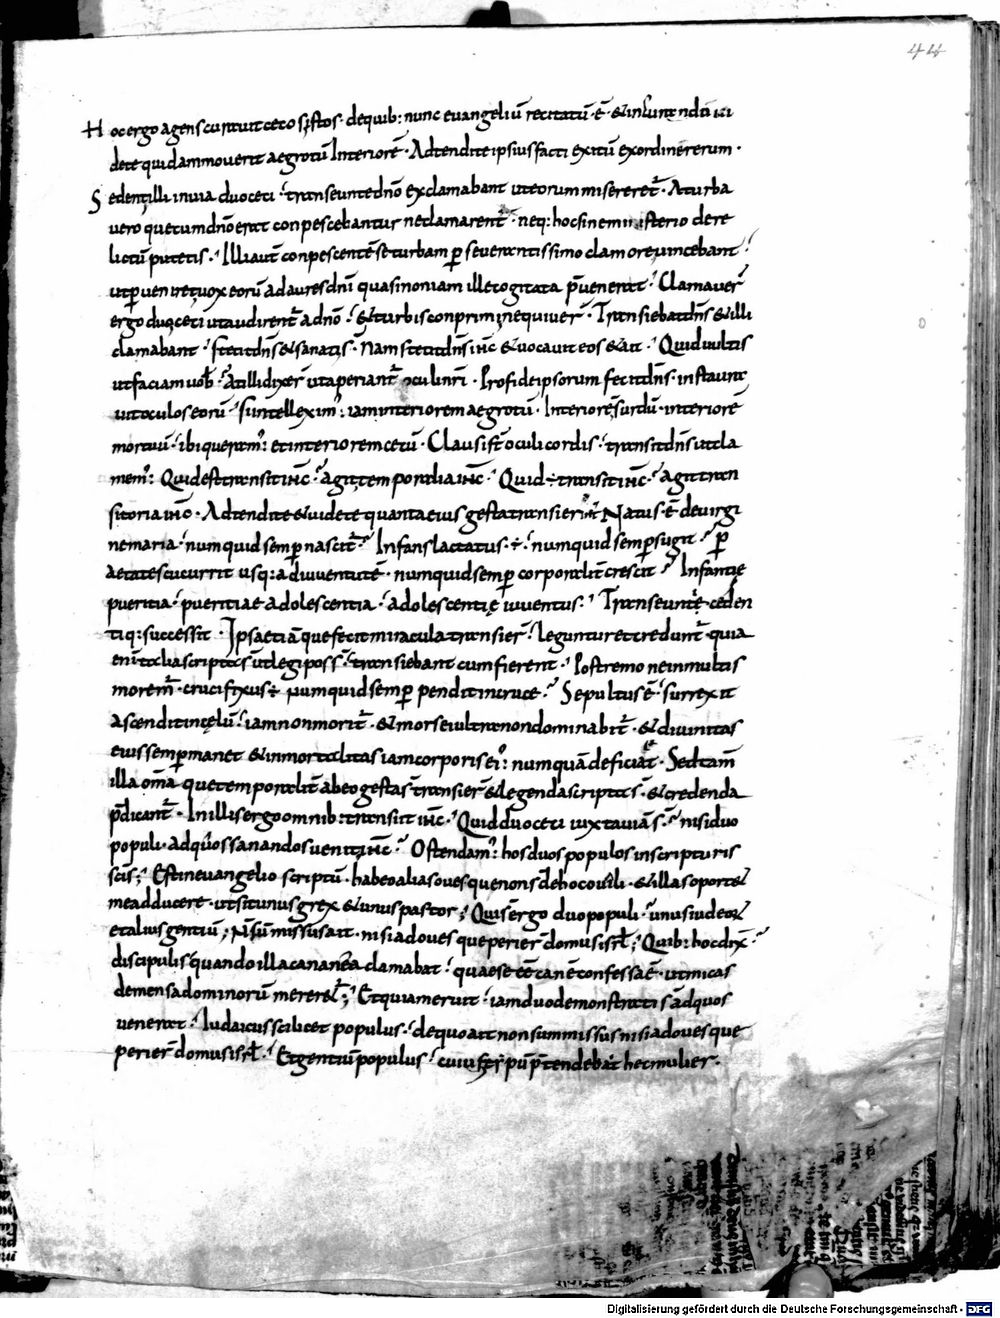 44
Hoc ergo agens curavit cecos istos · de quib: nunc evangeliū recitatū · ē · &
dete quid ammoverit aegrotū Interiorē · Adtendite ipsius facti exitū ex ordine rerum ·
Sedent illi in via duo ceti · transeunte dnō exclamabant ut eorum misereret · A turba
vero que cum dnō erat conpescebantur ne clamarent · neq: hoc sine ministerio dere
lictū putetis · Illi aut conpescentē se turbam p severantissimo clamore vincebant
ut p veniret vox eorū ad aures dnī quasi non iam ille cogitata p venerat · Clamaver
ergo duo ceti ut audirent a dnō · & turbis conprimi nequiver · Transiebat dns & illi
clamabant · stetit dns & sanatis · Nam stetit dns ihc & vocavit eos & ait · Quid vultis
ut faciam vob · At illi dixer ut aperiant oculi nri · Pro fide ipsorum fecit dns · instaurat
vit oculos eorū · Si intelleximˀ: iam interiorem aegrotū · Interiorē surdū · interiorē
mortuū · ibi queramˀ: et interiorem cetū · Clausi st oculi cordis · transit dns ut cla
memˀ: Quid est transit ihc · agit temporalia ihc · Quid ÷ transit ihc · agit tran
sitoria ihc · Adtendite & videte quanta eius gesta transierint Natus · ē de virgi
ne maria · numquid semp nascit · Infans lactatus · ÷ · numquid semp sugit · p
aetates cucurrit usq: ad iuventutē · numquid semp corporalit crescit · Infantię
pueritia · pueritiae adolescentia · adolescentię iuventus · Transeunte ceden
tiq: successit · Ipsa etiā que fecit miracula transier · leguntur et credunt · quia
enī talia scripta st ut legi poss · transiebant cum fierent · Postremo ne in multis
moremˀ · crucifixus ÷ numquid semp pendit in cruce · Sepultus ē · surrexit
ascendit in cęlū · iam non morit · & mors ei ultra non dominabit · & divinitas
eius semp manet & inmortalitas iam corporis eiˀ: numquā deficiet · Sed tam
illa oma que temporalit ab eo gesta st transier & legenda scripta s · & credenda
pdicant · In illis ergo omnib: transiit ihc · Quid duo ceti iuxta viā s · nisi duo
populi · ad quos sanandos venit ihc · Ostendamˀ: hos duos populos in scripturis
scis; Est in evangelio scriptū · habeo alias oves que non s de hoc ovili · & illas oport&
me adducere · ut sit unus grex & unus pastor; Qui s ergo duo populi · unus iudeo
et alius gentiū; N sū missus ait · nisi ad oves que perier domus isrl; Quib: hoc dix
discipulis quando illa cananea clamabat · quae se ēē canē confessa ē · ut micas
de mensa dominorū merer&; Et quia meruit · iam duo demonstrati s ad quos
venerat · Iudaicus scilicet populus · de quo ait non sum missus nisi ad oves que
perier domus isrl · Et gentiū populus · cui pū ptendebat hec mulier ·
Digitalisierung gefördert durch die Deutsche Forschungsgemeinschaft · DFG